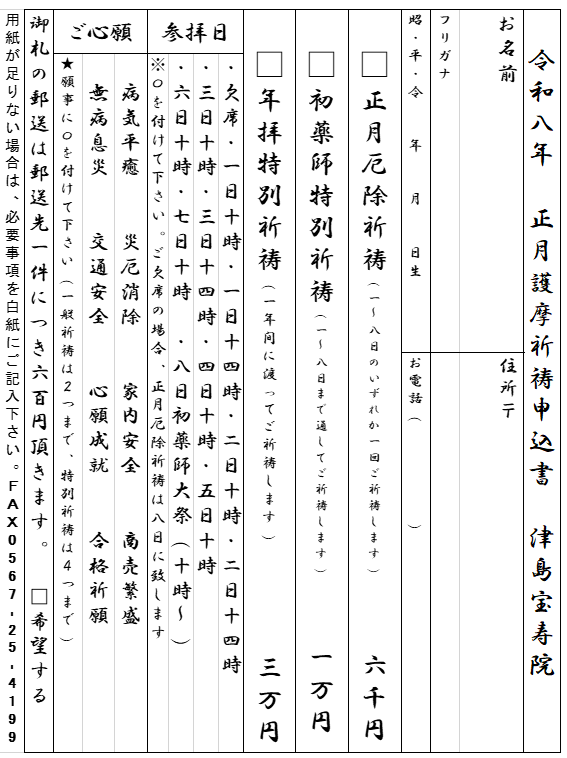 令和八年　正月護摩祈祷申込書　津島宝寿院
お名前
住所〒
フリガナ
昭・平・令　年　月　日生
お電話（　　　）
□正月厄除祈祷（一～八日のいずれか一回ご祈祷します）　六千円
□初薬師特別祈祷（一～八日まで通してご祈祷します）　一万円
□年拝特別祈祷（一年間に渡ってご祈祷します）　三万円
参拝日
・欠席・一日十時・一日十四時・二日十時・二日十四時
・三日十時・三日十四時・四日十時・五日十時
・六日十時・七日十時　・八日初薬師大祭（十時～）
※○を付けて下さい。ご欠席の場合、正月厄除祈祷は八日に致します
ご心願
病気平癒　災厄消除　家内安全　商売繁盛
無病息災　交通安全　心願成就　合格祈願
★願事に○を付けて下さい（一般祈祷は２つまで、特別祈祷は４つまで）
御札の郵送は郵送先一件につき六百円頂きます。　□希望する
用紙が足りない場合は、必要事項を白紙にご記入下さい。ＦＡＸ０５６７-２５-４１９９